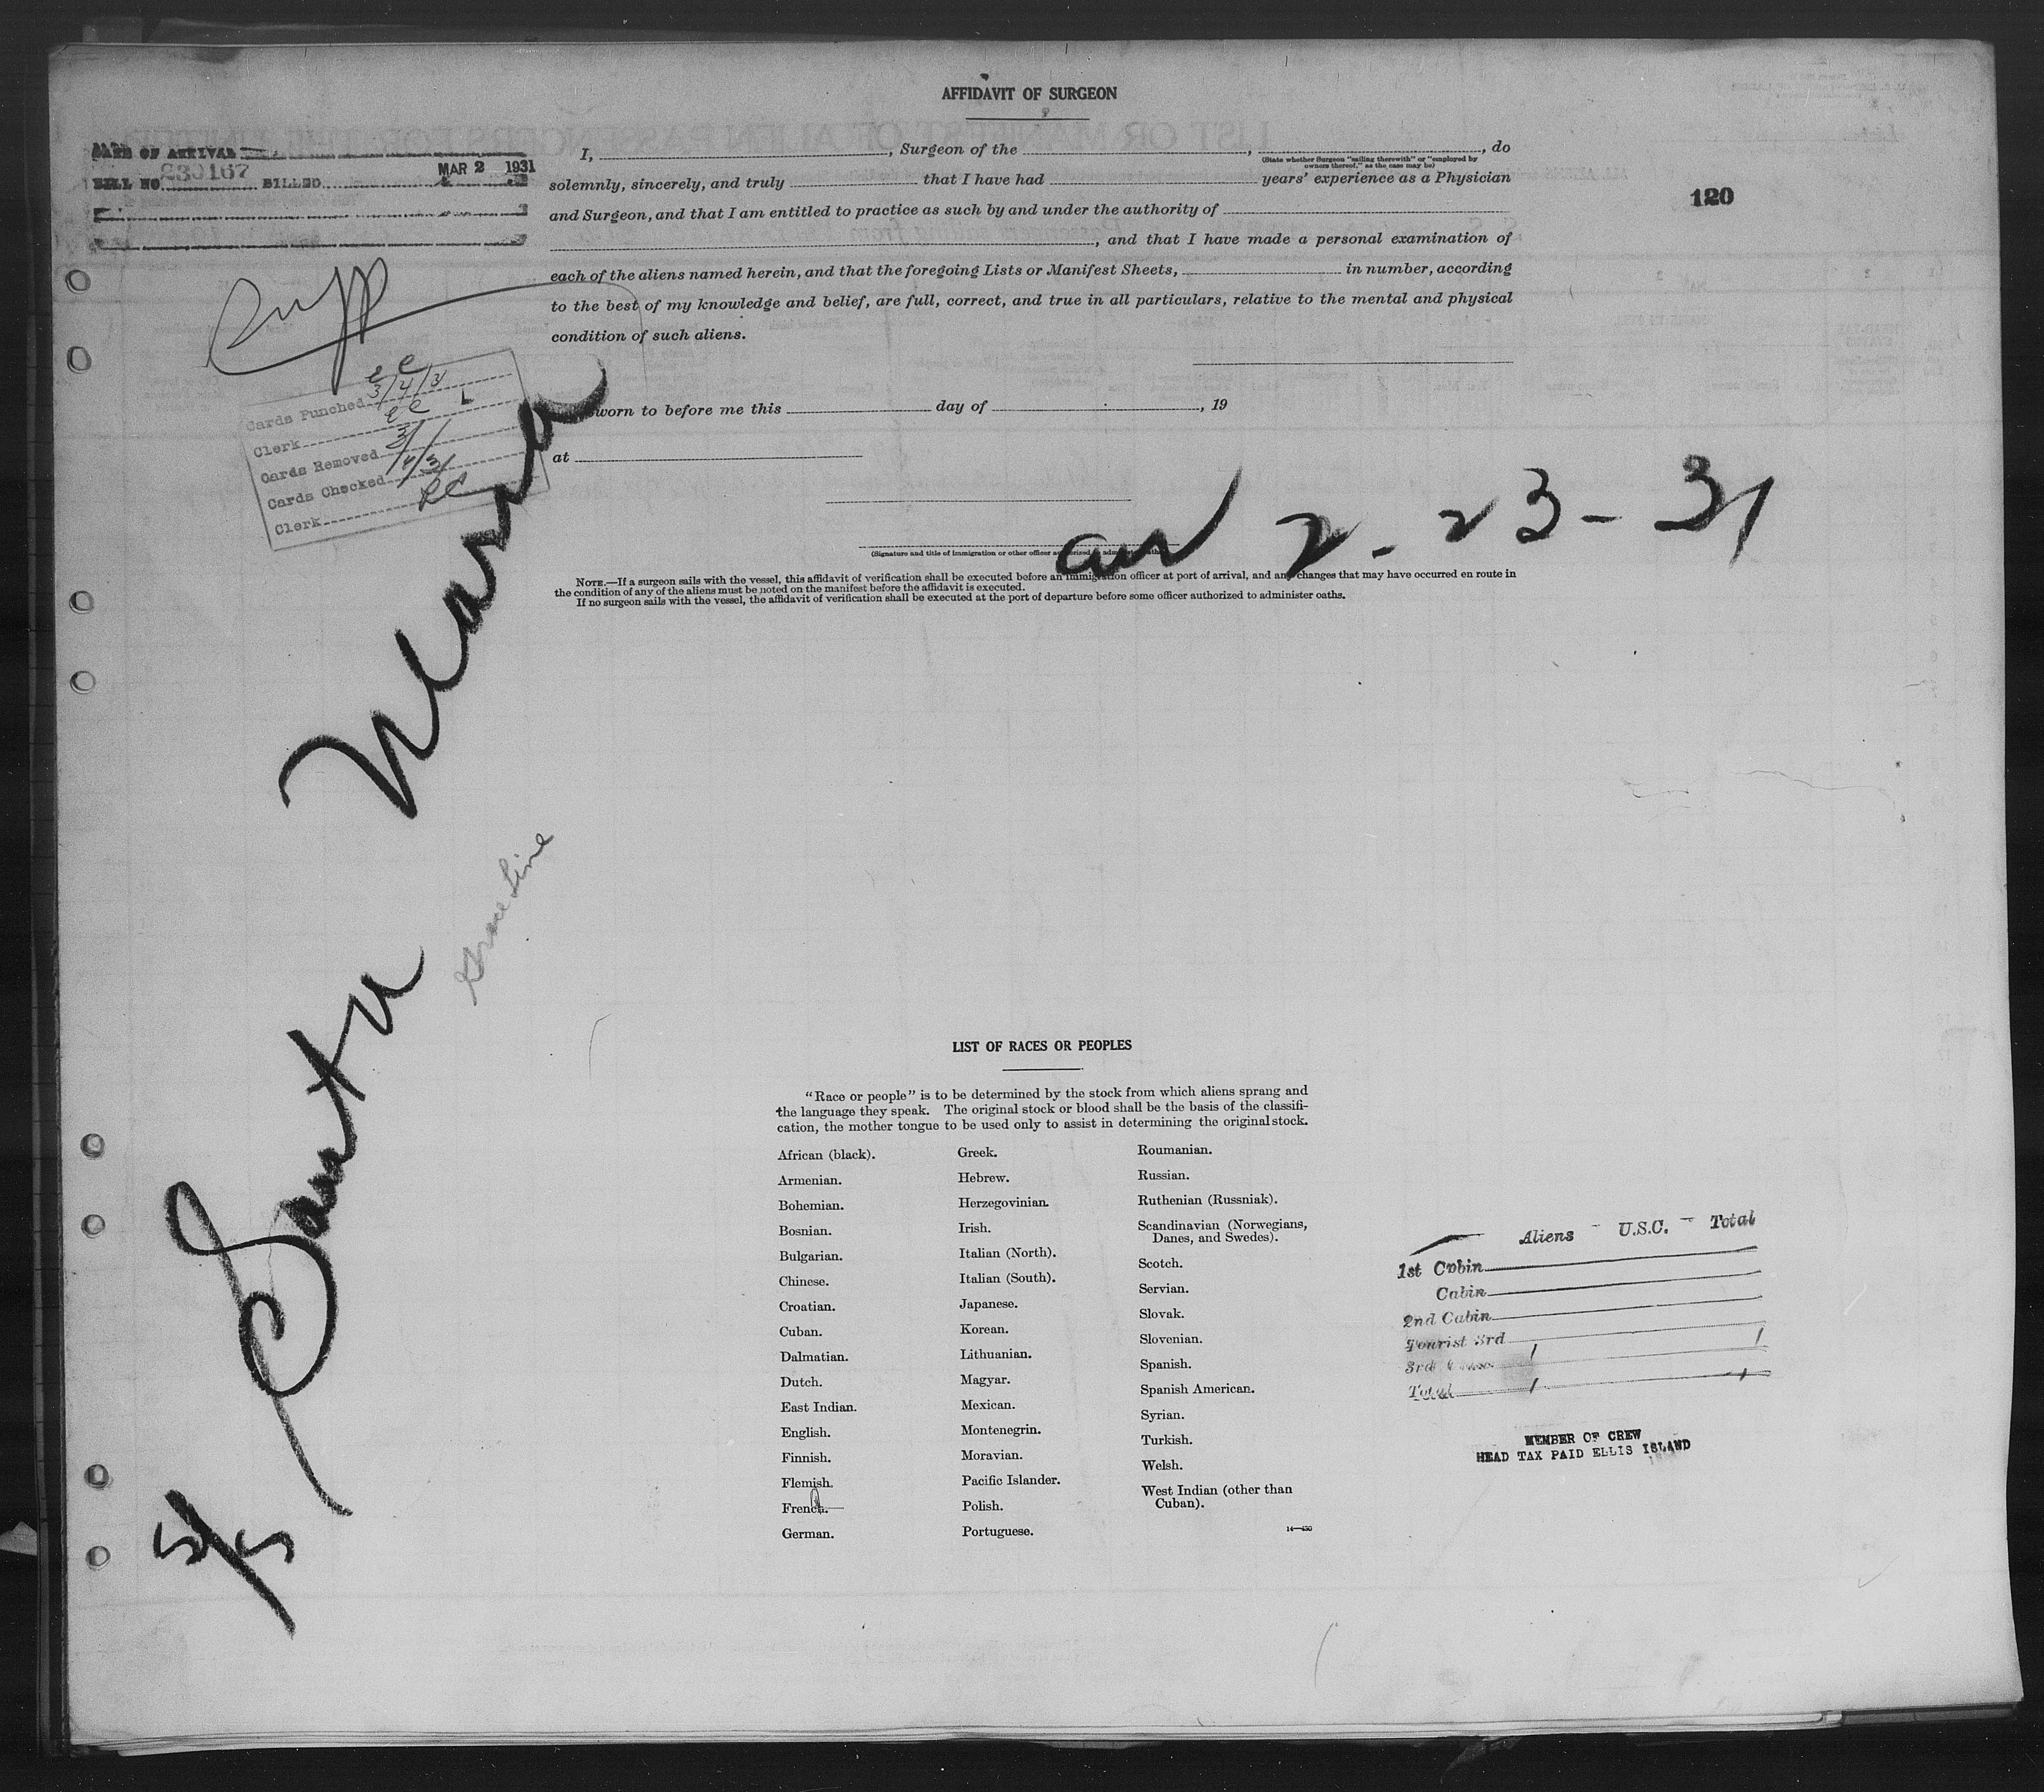 AFFIDAVIT OF SURGEON
DATE OF ARRIVAL
BILL NO. 230167 BILLED MAR 2 1931
120
I, , Surgeon of the , , do
(State whether Surgeon "sailing therewith" or "employed by
owners thereof," as the case may be)
solemnly, sincerely, and truly that I have had years' experience as a Physician
and Surgeon, and that I am entitled to practice as such by and under the authority of
, and that I have made a personal examination of
each of the aliens named herein, and that the foregoing Lists or Manifest Sheets, in number, according
to the best of my knowledge and belief, are full, correct, and true in all particulars, relative to the mental and physical
condition of such aliens.
Supp
Cards Punched 3/4/31
Clerk
Cards Removed
Cards Checked
Clerk
sworn to before me this day of , 19
at
arr 2-23-31
(Signature and title of immigration or other officer authorized to administer oaths)
NOTE.—If a surgeon sails with the vessel, this affidavit of verification shall be executed before an immigration officer at port of arrival, and any changes that may have occurred en route in
the condition of any of the aliens must be noted on the manifest before the affidavit is executed.
If no surgeon sails with the vessel, the affidavit of verification shall be executed at the port of departure before some officer authorized to administer oaths.
S/S Santa Clara
Grace Line
LIST OF RACES OR PEOPLES
"Race or people" is to be determined by the stock from which aliens sprang and
the language they speak. The original stock or blood shall be the basis of the classifi-
cation, the mother tongue to be used only to assist in determining the original stock.
African (black).
Armenian.
Bohemian.
Bosnian.
Bulgarian.
Chinese.
Croatian.
Cuban.
Dalmatian.
Dutch.
East Indian.
English.
Finnish.
Flemish.
French.
German.
Greek.
Hebrew.
Herzegovinian.
Irish.
Italian (North).
Italian (South).
Japanese.
Korean.
Lithuanian.
Magyar.
Mexican.
Montenegrin.
Moravian.
Pacific Islander.
Polish.
Portuguese.
Roumanian.
Russian.
Ruthenian (Russniak).
Scandinavian (Norwegians,
Danes, and Swedes).
Scotch.
Servian.
Slovak.
Slovenian.
Spanish.
Spanish American.
Syrian.
Turkish.
Welsh.
West Indian (other than
Cuban).
14—430
Aliens - U.S.C. - Total
1st Cabin
Cabin
2nd Cabin
Tourist 3rd
3rd Class 1 1
Total 1 1
MEMBER OF CREW
HEAD TAX PAID ELLIS ISLAND